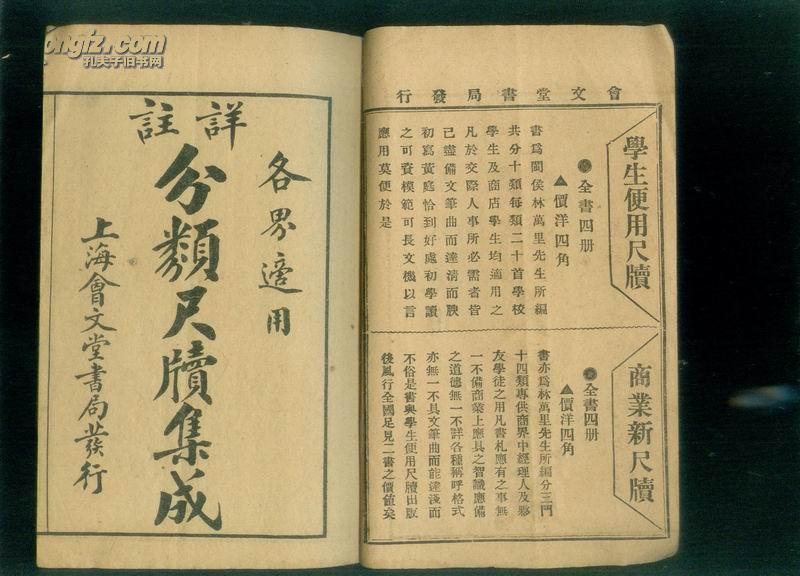 會文堂書局發行
學生便用尺牘
●全書四册
▲價洋四角
書爲閩侯林萬里先生所編
共分十類每類二十首學校
學生及商店學生均適用之
凡於交際人事所必需者皆
己盡備文筆曲而達淸而腴
初寫黃庭恰到好處初學讀
之可資模範可長文機以言
應用莫便於是
商業新尺牘
●全書四册
▲價洋四角
書亦爲林萬里先生所編分三門
十四類專供商界中經理人及夥
友學徒之用凡書札應有之事無
一不備商業上應具之智識應備
之道德無一不詳各種稱呼格式
亦無一不具文筆曲而能達淺而
不俗是書與學生便用尺牘出版
後風行全國足見二書之價値矣
各界適用
詳註
分類尺牘集成
上海會文堂書局發行
孔夫子旧书网